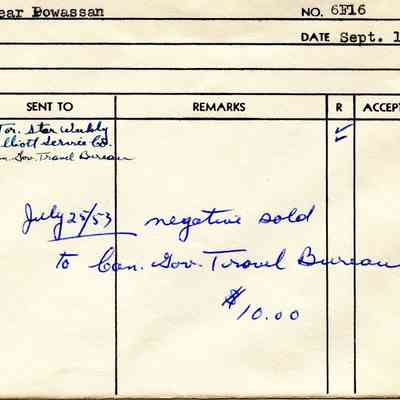 ear Powassan NO. 6F16
DATE Sept. 1
SENT TO REMARKS R ACCEPT
Tor. Star Weekly
lliott Service Co.
n. Gov. Travel Bureau
July 25/53 negative sold
to Can. Gov. Travel Bureau
$10.00